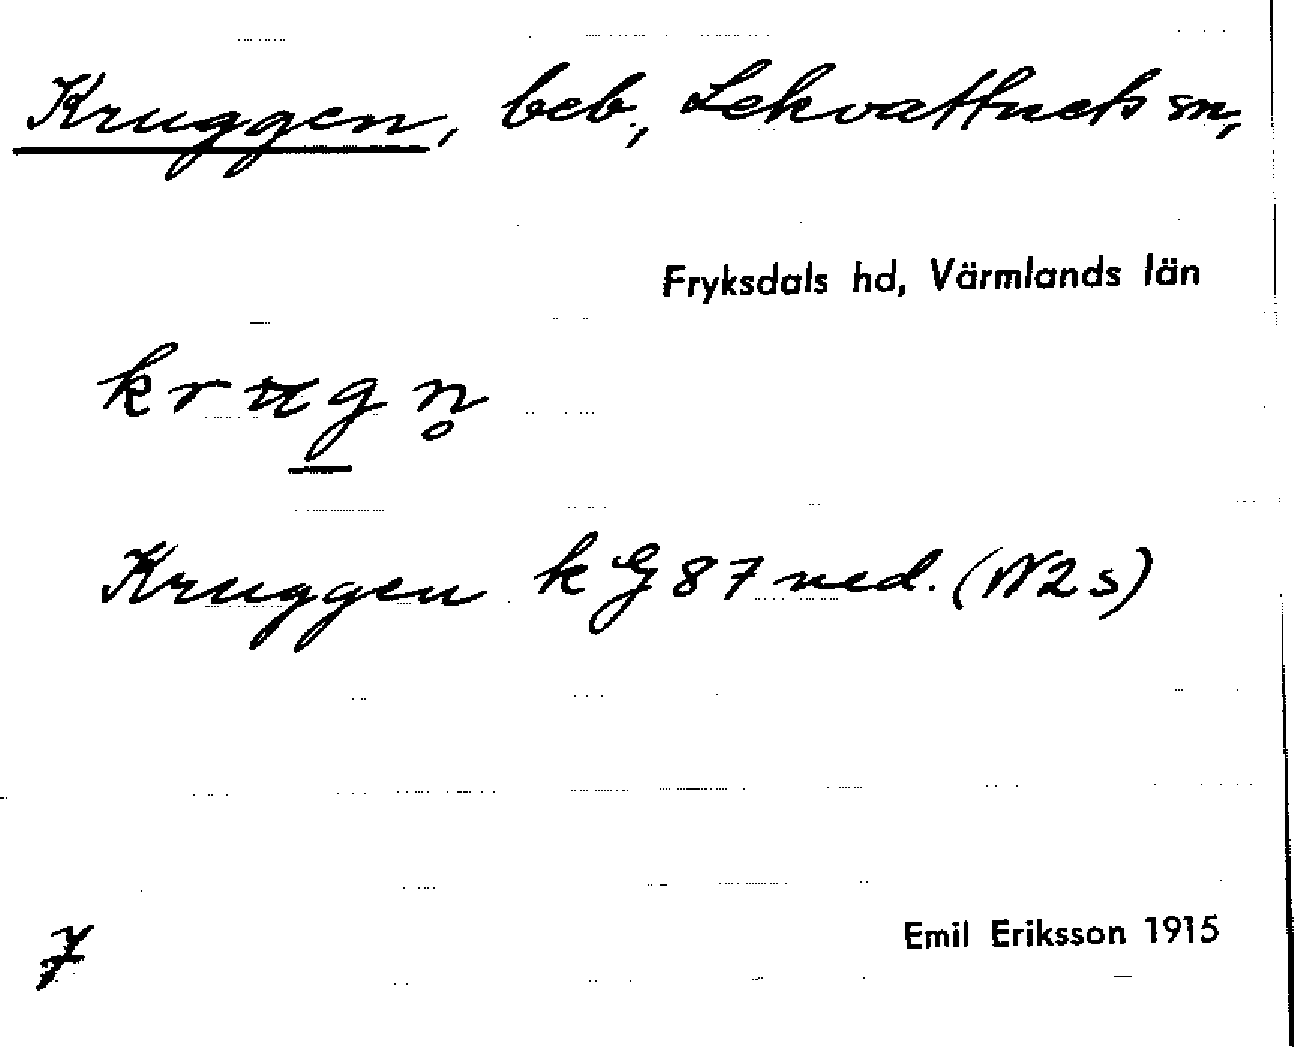 Kruggen, beb., Lekvattnets sn,
Fryksdals hd, Värmlands län
krʉgn̥
Kruggen k G 87 ned. (N2s)
7
Emil Eriksson 1915